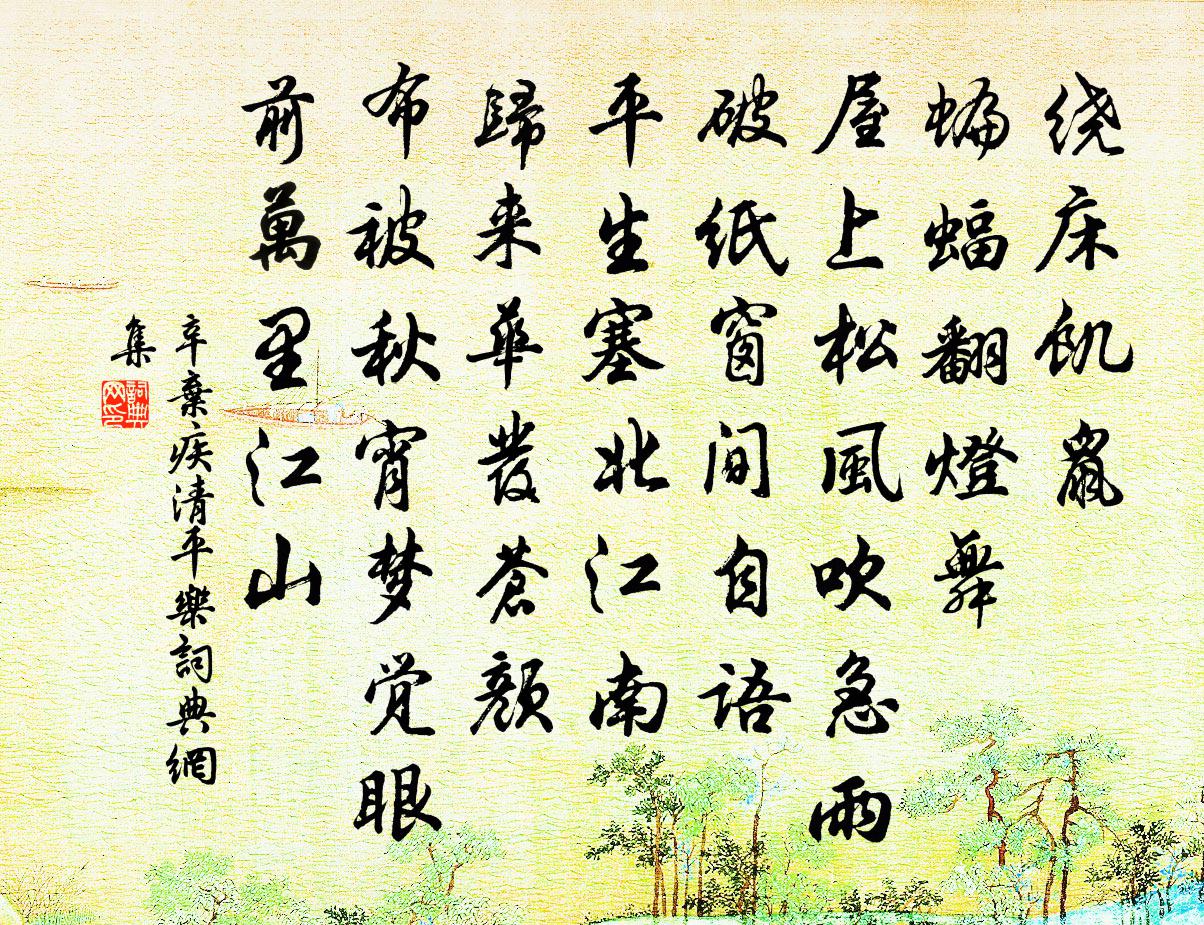 绕床飢鼠
蝙蝠翻燈舞
屋上松風吹急雨
破紙窗间自语
平生塞北江南
歸来華髮蒼顏
布被秋宵梦觉眼
前萬里江山
辛棄疾清平樂詞典網
集
詞典网印